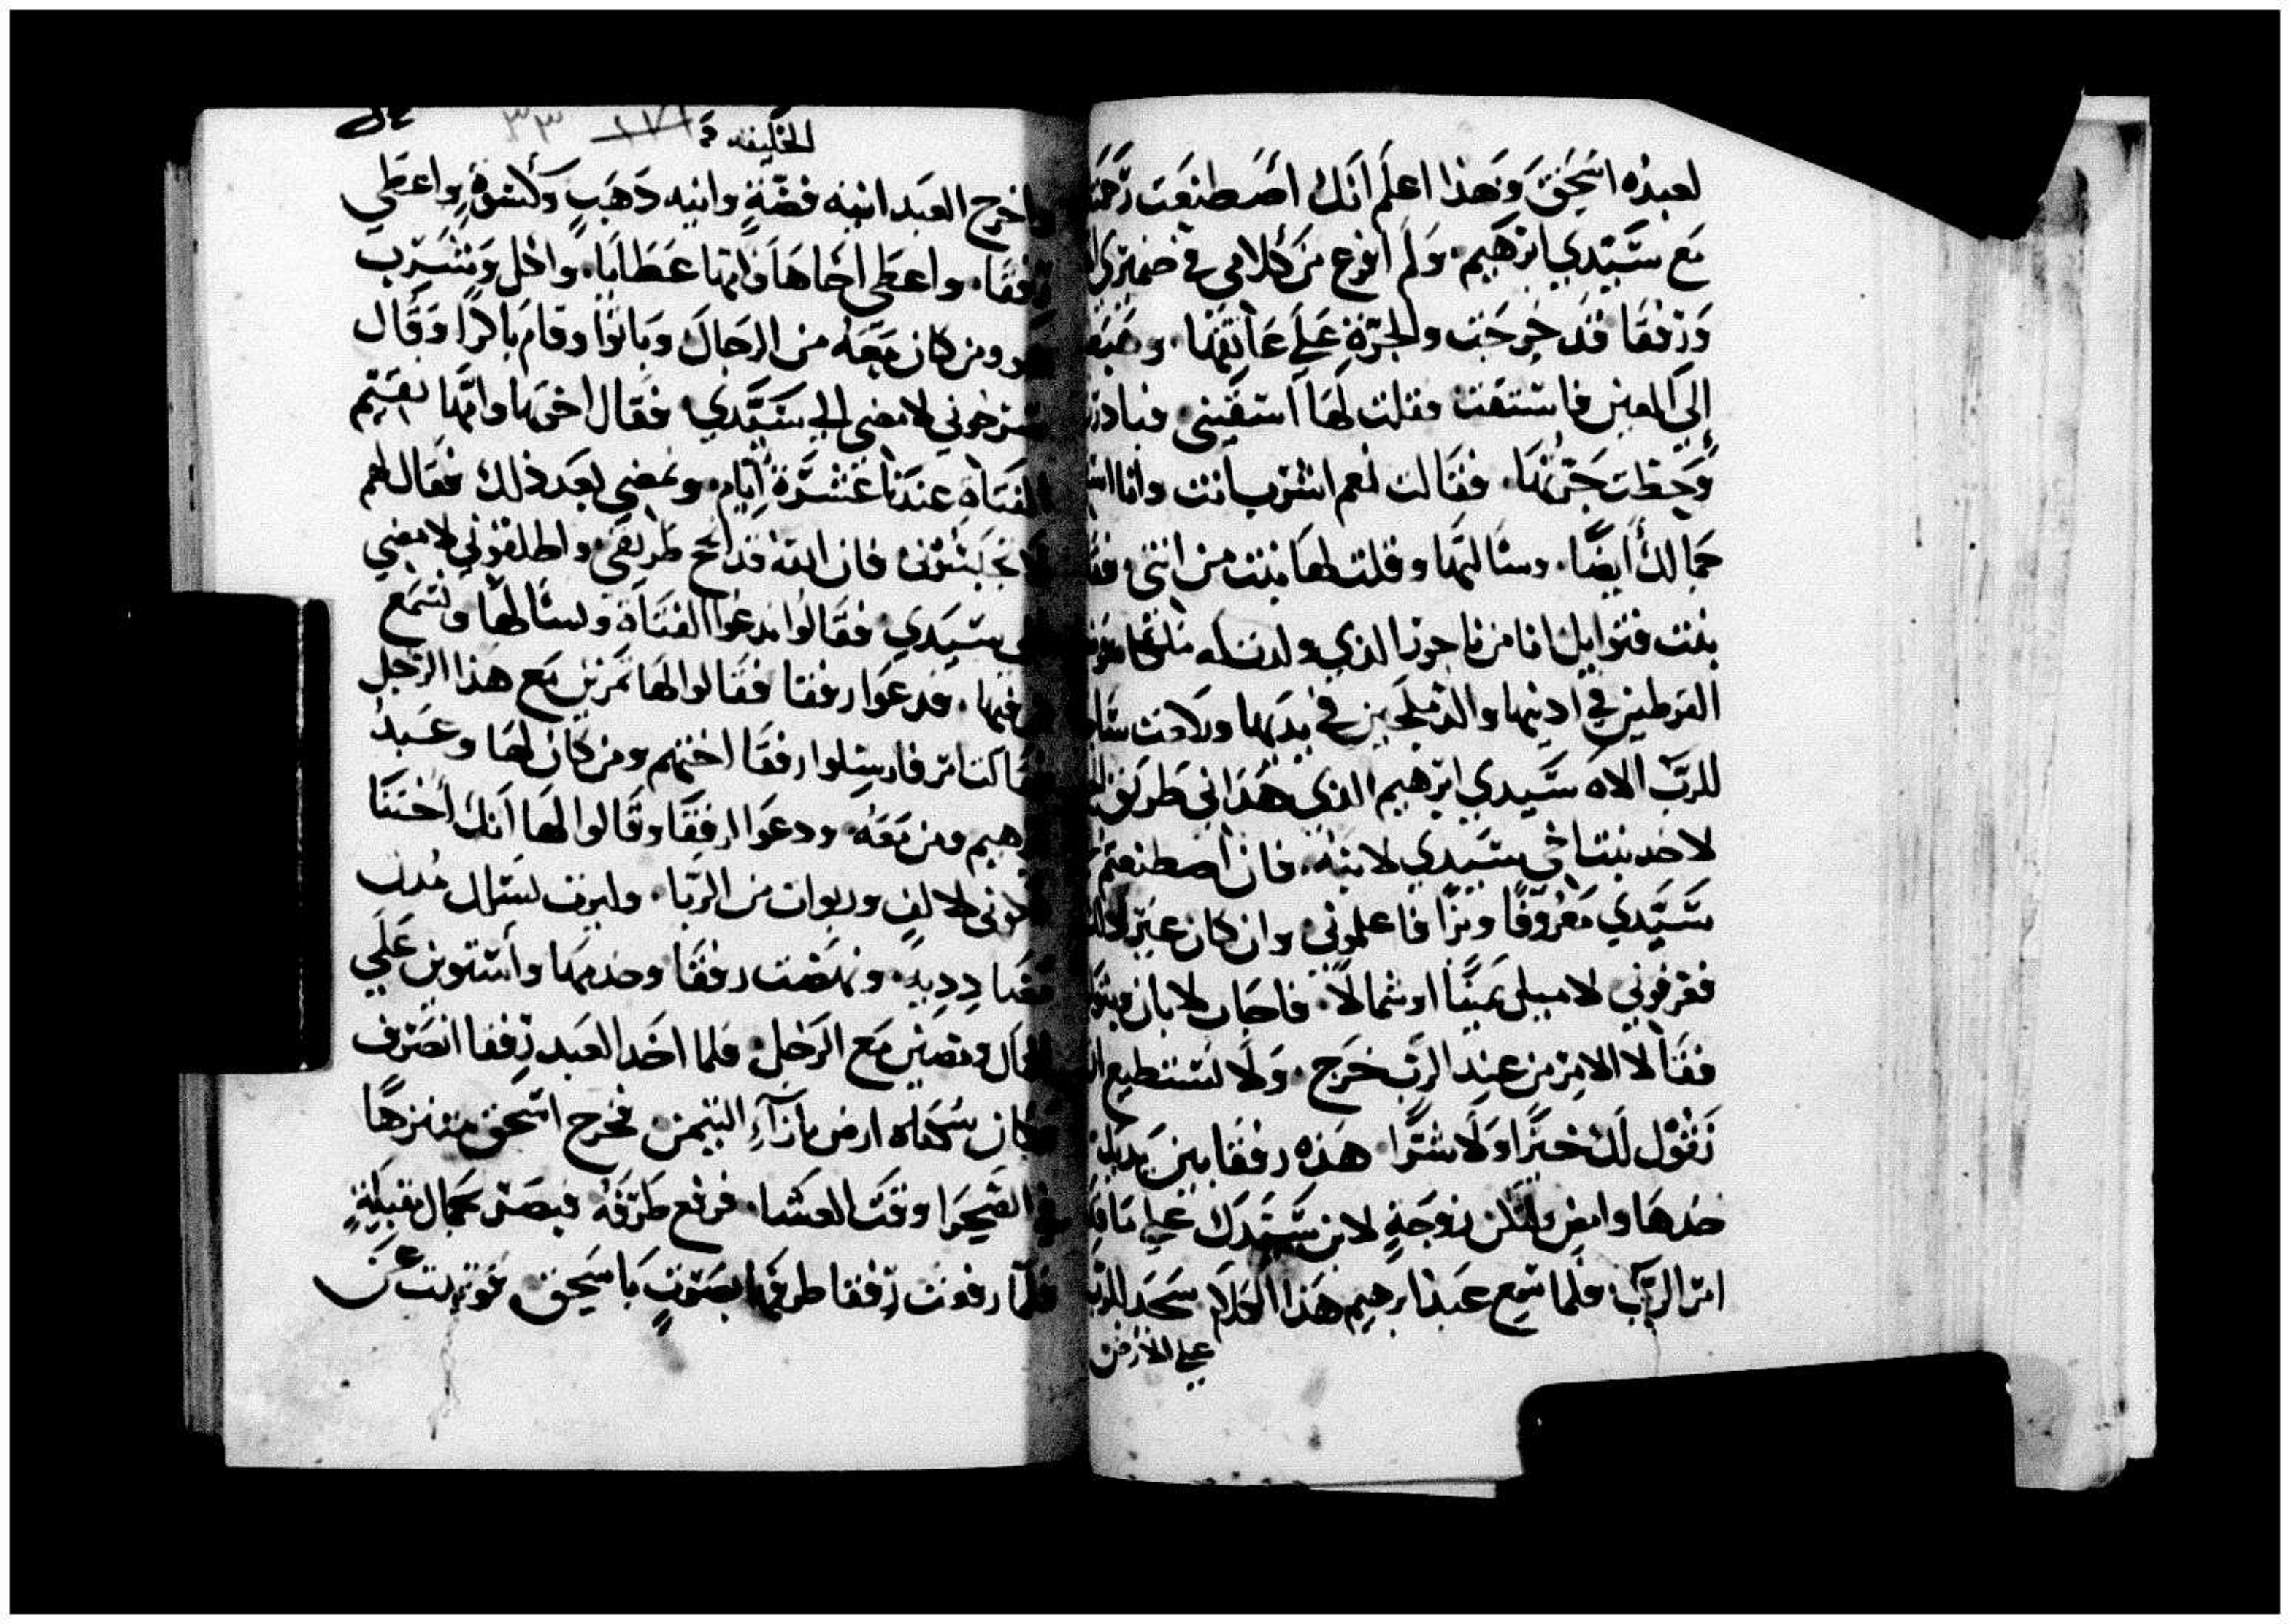 لعبدك اسحق وبهذا اعلم انك اصطنعت رحمة
مع سيدي ابرهيم. ولم افرغ من كلامي في ضميري
ورفقا قد خرجت والجرة على عاتقها. ومضت
إلى العين فاستقت فقلت لها استقيني فبادرت
وحطت جرتها. فقالت نعم اشرب انت وانا
جمالك أيضا. وسالتها وقلت لها بنت من انتي
بنت فتوايل انا من ناحور الذي ولدت له
القرطين في ادنيها والدملجين في يديها
للرب الاه سيدي ابرهيم الذي هداني طريق
لاخد بنت اخي سيدي لابنه. فان اصطنعتم
سيدي معروفا وبرا فاعلموني وان كان غير ذلك
فعرفوني لاميل يمينا او شمالا. فاجاب لابان
فقالا الامر من عند الرب خرج. ولا نستطيع
نقول لك خيرا ولا شرا هذه رفقا بين يديك
خدها وامض ولتكن زوجة لابن سيدك على ما
امر الرب. فلما سمع عبد ابرهيم هذا الكلام سجد للرب
على الارض
الخليقه
٣٣
واخرج العبد انيه فضة وانيه دهب وكسوة واعطى
رفقا. واعطى اخاها وامها عطايا. واكل وشرب
هو ومن كان معه من الرجال وباتوا وقام باكرا وقال
سرحوني لامضي الى سيدي فقال اخوها وامها تقيم
الفتاه عندنا عشرة ايام. وتمضي بعد ذلك فقال لهم
لا تحبسوني فان الله قد انجح طريقي واطلقوني لامضي
الى سيدي. فقالوا ندعوا الفتاة ونسالها ونسمع
من فيها. فدعوا رفقا فقالوا لها تمرين مع هذا الرجل
فقالت امر فارسلوا رفقا اختهم ومن كان لها وعبد
ابرهيم ومن معه. ودعوا لرفقا وقالوا لها انك اختنا
كوني لالف وربوات من الربا. وليرث نسلك مدن
ونهضت رفقا وخدمها واستوين على
الجمال ومضين مع الرجل. فلما اخد العبد رفقا انصرف
وكان ارض بازآء التيمن فخرج اسحق متنزها
في الصحرا وقت العشا. فرفع طرفه فبصر بجمال مقبلة
فلما رفعت رفقا طرفها بصرت باسحق فنزلت عن